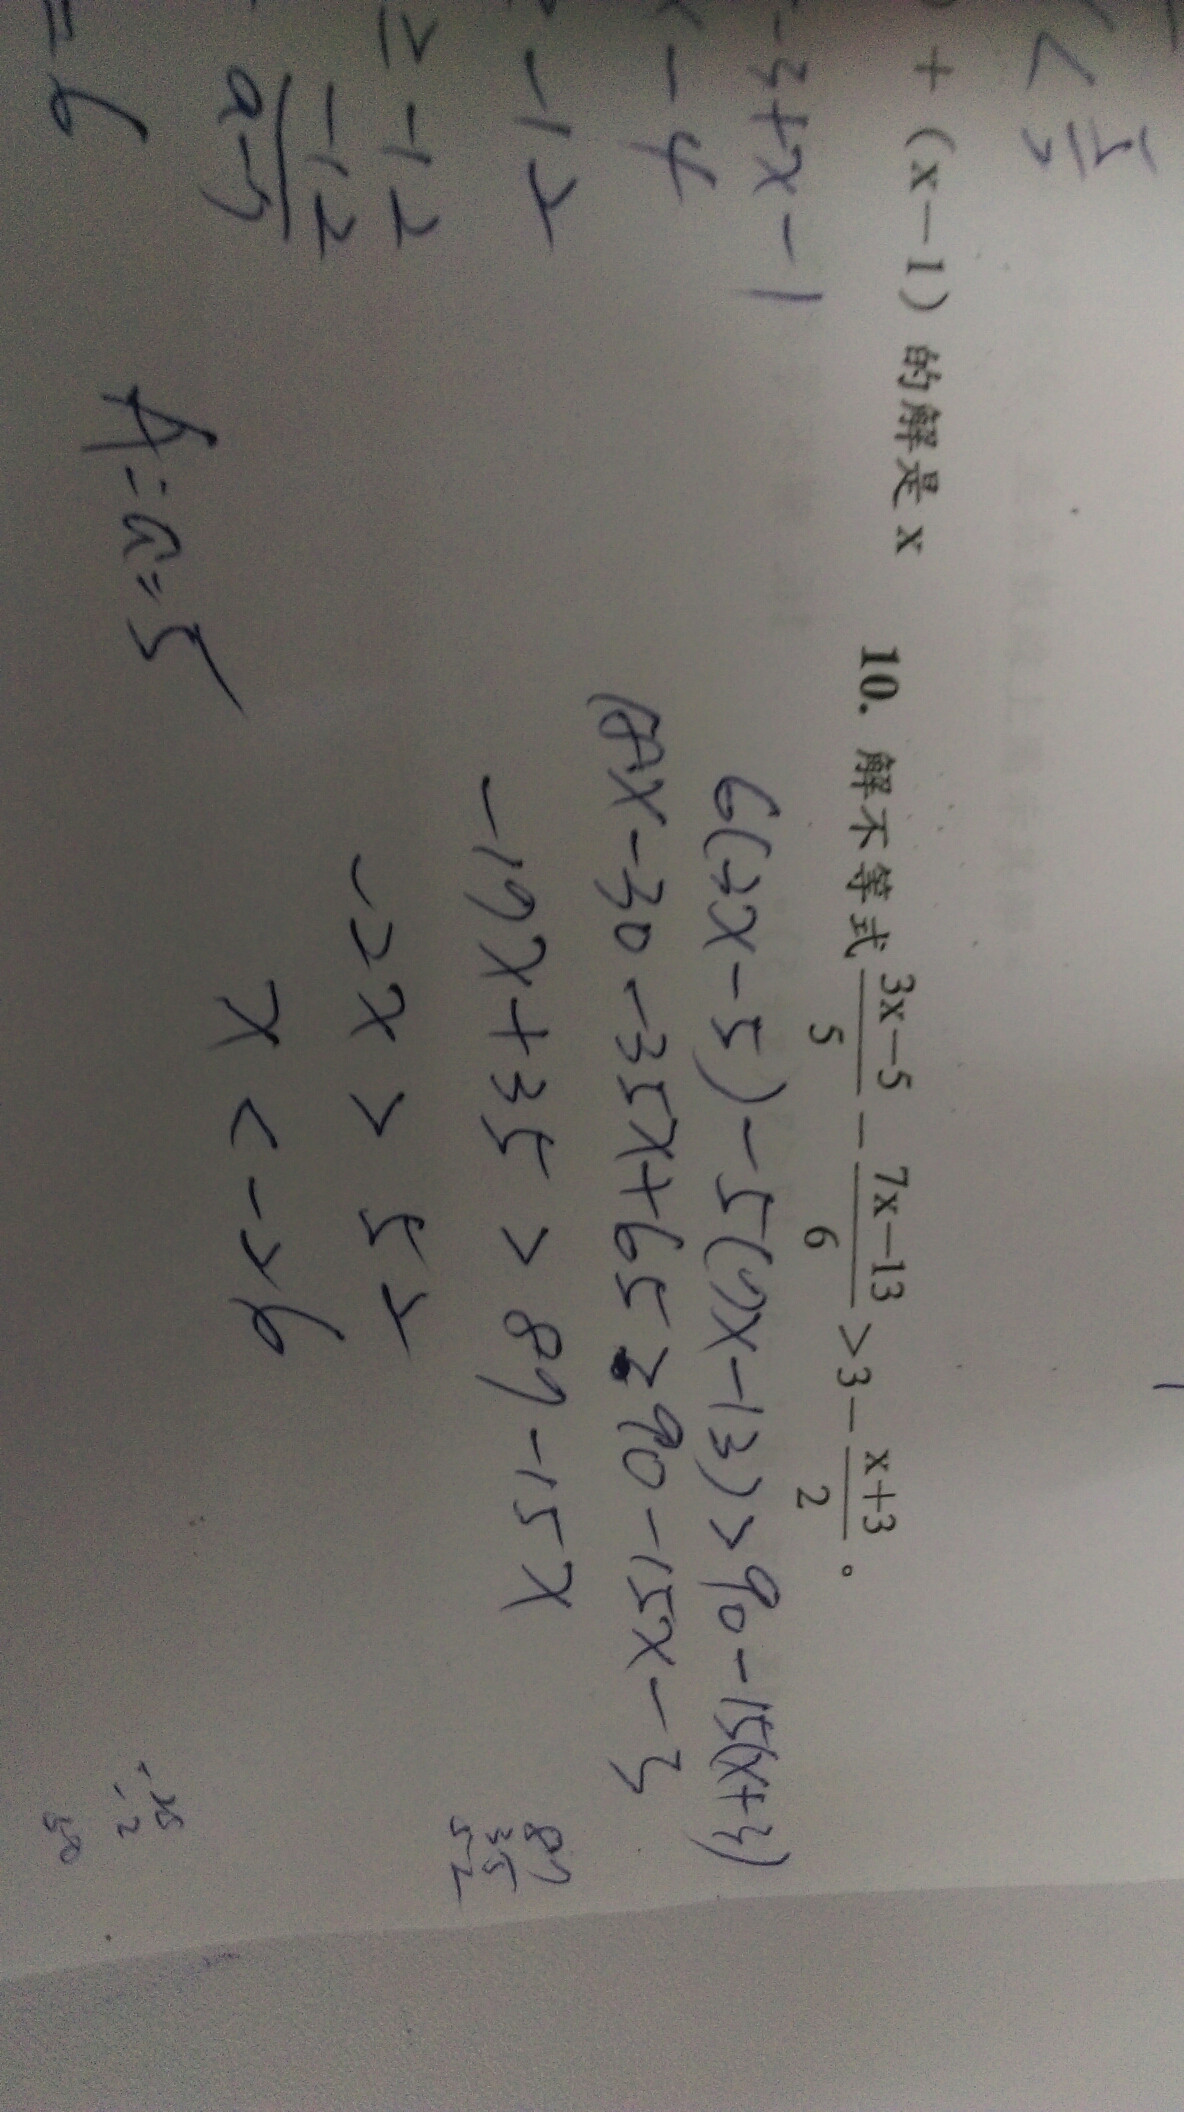 < 5/2
+（x—1）的解是 x
-3+x-1
x-4
-12
≥-12
-12/a-5
=6
故:a=5
10. 解不等式 3x—5/5 — 7x—13/6 >3— x+3/2 。
6(3x-5)-5(7x-13)>90-15(x+3)
18x-30-35x+65>90-15x-3
-17x+35>87-15x
-2x>52
x<-26
87
35
52